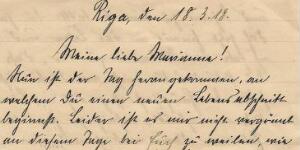 Riga, den 18.3.18.
Meine liebe Marianne!
Nun ist der Tag herangekommen, an
welchem Du einen neuen Lebensabschnitt
beginnst. Leider ist es mir nicht vergönnt
an diesem Tage bei Euch zu weilen, wie